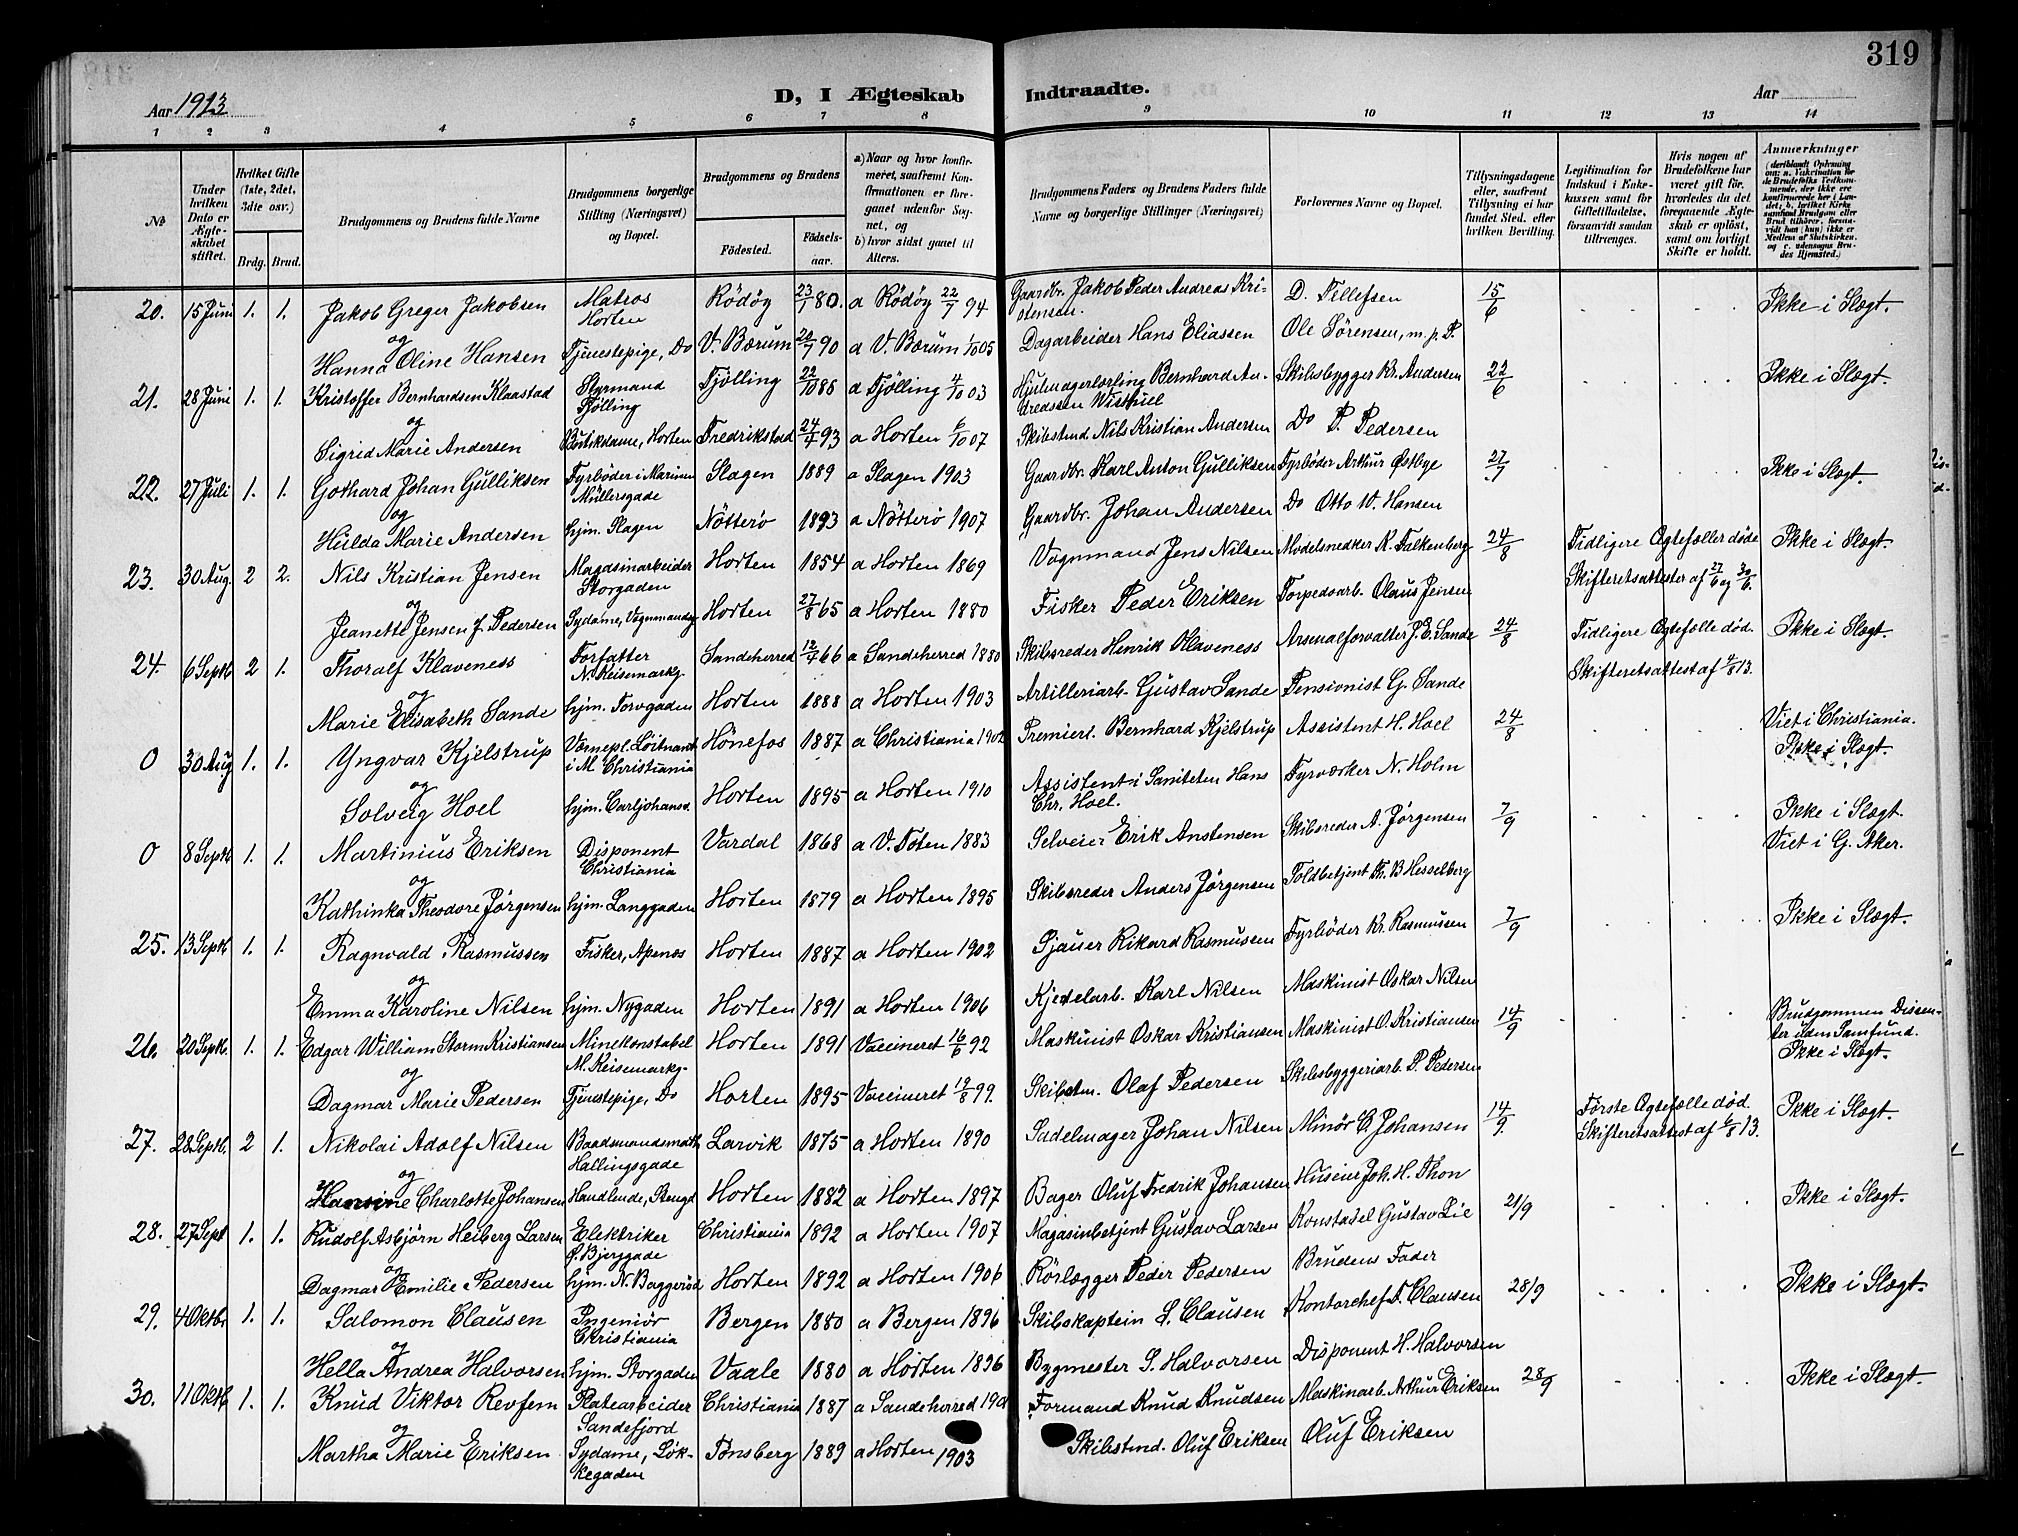 319
Aar 1913
D, I Ægteskab Indtraadte.
Aar
1 2 3 4 5 6 7 8 9 10 11 12 13 14
No
Under hvilken Dato er Ægteskabet stiftet.
Hvilket Gifte (1ste, 2det, 3die osv.)
Brdg. Brud.
Brudgommens og Brudens fulde Navne
Brudgommens borgerlige Stilling (Næringsvei) og Bopæl.
Brudgommens og Brudens
Födested.
Födselsaar.
a) Naar og hvor konfirmeret, saafremt Konfirmationen er foregaaet udenfor Sognet, og
b) hvor sidst gaaet til Alters.
Brudgommens Faders og Brudens Faders fulde Navne og borgerlige Stillinger (Næringsvei)
Forlovernes Navne og Bopæl.
Tillysningsdagene eller, saafremt Tillysning ei har fundet Sted, efter hvilken Bevilling.
Legitimation for Indskud i Enkekassen samt for Giftetilladelse, forsaavidt saadan tiltrænges.
Hvis nogen af Brudefolkene har været gift för, hvorledes da det foregaaende Ægteskab er oplöst, samt om lovligt Skifte er holdt.
Anmerkninger (deriblandt Oplysning om: a. Vakcination for de Brudefolks Vedkommende, der ikke ere konfirmerede her i Landet; b. hvilket Kirkesamfund Brudgom eller Brud tilhörer, forsaavidt han (hun) ikke er Medlem af Statskirken, og c. udensogns Brudes Hjemsted.)
20. 15 Juni 1. 1. Jakob Greger Jakobsen Matros Horten Rödöy 23/1 80. a Rödöy 22/7 94 Gaardbr. Jakob Peder Andreas Kristensen. D. Tillefsen 15/6 Ikke i Slægt.
og
Hanna Oline Hansen Tjenestepige, Do V. Bærum 20/7 90 a V. Bærum 1/10 05 Dagarbeider Hans Eliassen Ole Sörensen, m. p. P.
21. 28 Juni 1. 1. Kristoffer Bernhardsen Klaastad Styrmand Tjölling Tjölling 22/10 88 a Tjölling 4/10 03 Hjulmagerlærling Bernhard Andreassen Skibsbygger Kr. Andersen 22/6 Ikke i Slægt.
og
Sigrid Marie Andersen Butikdame, Horten Fredrikstad 24/4 93 a Horten 6/10 07 Skibstmd. Nils Kristian Andersen Do P. Pedersen
22. 27 Juli 1. 1. Gothard Johan Gulliksen Fyrböder i Marinen Müllersgade Slagen 1889 a Slagen 1903 Gaardbr. Karl Anton Gulliksen Fyrböder Arthur Østbye 27/7 Ikke i Slægt.
og
Hulda Marie Andersen hjm. Slagen Nötterö 1893 a Nötterö 1907 Gaardbr. Johan Andersen Do Otto W. Hansen
23. 30 Aug. 2 2. Nils Kristian Jensen Magasinarbeider Storgaden Horten 1854 a Horten 1869 Vognmand Jens Nilsen Modelsnedker K. Falkenberg 24/8 Tidligere Ægtefæller døde Skifteretsattester af 27/6 og 30/6. Ikke i Slægt.
og
Jeanette Jensen f. Pedersen Sydame, Vognmandsg Horten 27/8 65 a Horten 1880 Fisker Peder Eriksen Torpedoarb. Olaus Jensen
24. 6 Septb 2 1. Thoralf Klaveness Forfatter N. Keisemarkg. Sandeherred 12/4 66 a Sandeherred 1880 Skibsreder Henrik Klaveness Arsenalforvalter J. E. Sande 24/8 Tidligere Ægtefælle død. Skifteretsattest af 4/8 13. Ikke i Slægt.
og
Marie Elisabeth Sande hjm. Torvgaden Horten 1888 a Horten 1903 Artilleriarb. Gustav Sande Pensionist G. Sande
0 30 Aug 1. 1. Yngvar Kjelstrup Værnepl. Löitnant i M. Christiania Hönefos 1887 a Christiania 1902 Premierl. Bernhard Kjelstrup Assistent H. Hoel 24/8 Viet i Christiania. Ikke i Slægt.
og
Solveig Hoel hjm. Carljohansv. Horten 1895 a Horten 1910 Assistent i Saniteten Hans Chr. Hoel. Fyrværker N. Holm
0 8 Septb 1. 1. Martinius Eriksen Disponent Christiania Vardal 1868 a V. Toten 1883 Selveier Erik Anstensen Skibsreder A. Jørgensen 7/9 Ikke i Slægt. Viet i G. Aker.
og
Kathinka Theodore Jørgensen hjm. Langgaden Horten 1879 a Horten 1895 Skibsreder Anders Jørgensen Toldbetjent Th. B Hesselberg
25. 13 Septb. 1. 1. Ragnvald Rasmussen Fisker, Apenes Horten 1887 a Horten 1902 Sjauer Rikard Rasmussen Fyrböder Kr. Rasmussen 7/9 Ikke i Slægt.
og
Emma Karoline Nilsen hjm. Nygaden Horten 1891 a Horten 1906 Kjedelarb. Karl Nilsen Maskinist Oskar Nilsen
26. 20 Septb. 1. 1. Edgar William Storm Kristiansen Minekonstabel M. Keisemarkg. Horten 1891 Vaccineret 16/6 92 Maskinist Oskar Kristiansen Maskinist O. Kristiansen 14/9 Brudgommen Dissenter uden Samfund. Ikke i Slægt.
og
Dagmar Marie Pedersen Tjenestepige, Do Horten 1895 Vaccineret 19/8 99. Skibstm. Olaf Pedersen Skibsbyggeriarb. P. Pedersen
27. 28 Septb. 2 1. Nikolai Adolf Nilsen Baadsmandsmath Hallingsgade Larvik 1875 a Horten 1890 Sadelmager Johan Nilsen Minör C. Johansen 14/9. Første Ægtefælle død. Skifteretsattest af 6/8 13. Ikke i Slægt.
og
Hansine Charlotte Johansen Handlende, Stengd Horten 1882 a Horten 1897 Bager Oluf Fredrik Johansen Huseier Joh. H. Thon
28. 27 Sept 1. 1. Rudolf Asbjörn Heiberg Larsen Elektriker Ø. Bjerggade Christiania 1892 a Horten 1907 Magasinbetjent Gustav Larsen Konstabel Gustav Lie 21/9 Ikke i Slægt.
og
Dagmar Emilie Pedersen hjm. N. Baggeröd Horten 1892 a Horten 1906 Rörlægger Peder Pedersen Brudens Fader
29. 4 Oktbr 1. 1. Salomon Clausen Ingeniör Christiania Bergen 1880 a Bergen 1896 Skibskaptein S. Clausen Kontorchef T. Clausen 28/9 Ikke i Slægt.
og
Hella Andrea Halvorsen hjm. Storgaden Vaale 1880 a Horten 1896 Bygmester S. Halvorsen Disponent H. Halvorsen
30. 11 Oktb 1. 1. Knud Viktor Revfem Platearbeider Sandefjord Christiania 1887 a Sandeherred Formand Knud Knudsen Maskinarb. Arthur Eriksen 28/9 Ikke i Slægt.
og
Martha Marie Eriksen Sydame, Løkkegaden Tønsberg 1889 a Horten 1903 Skibstmd. Oluf Eriksen Oluf Eriksen